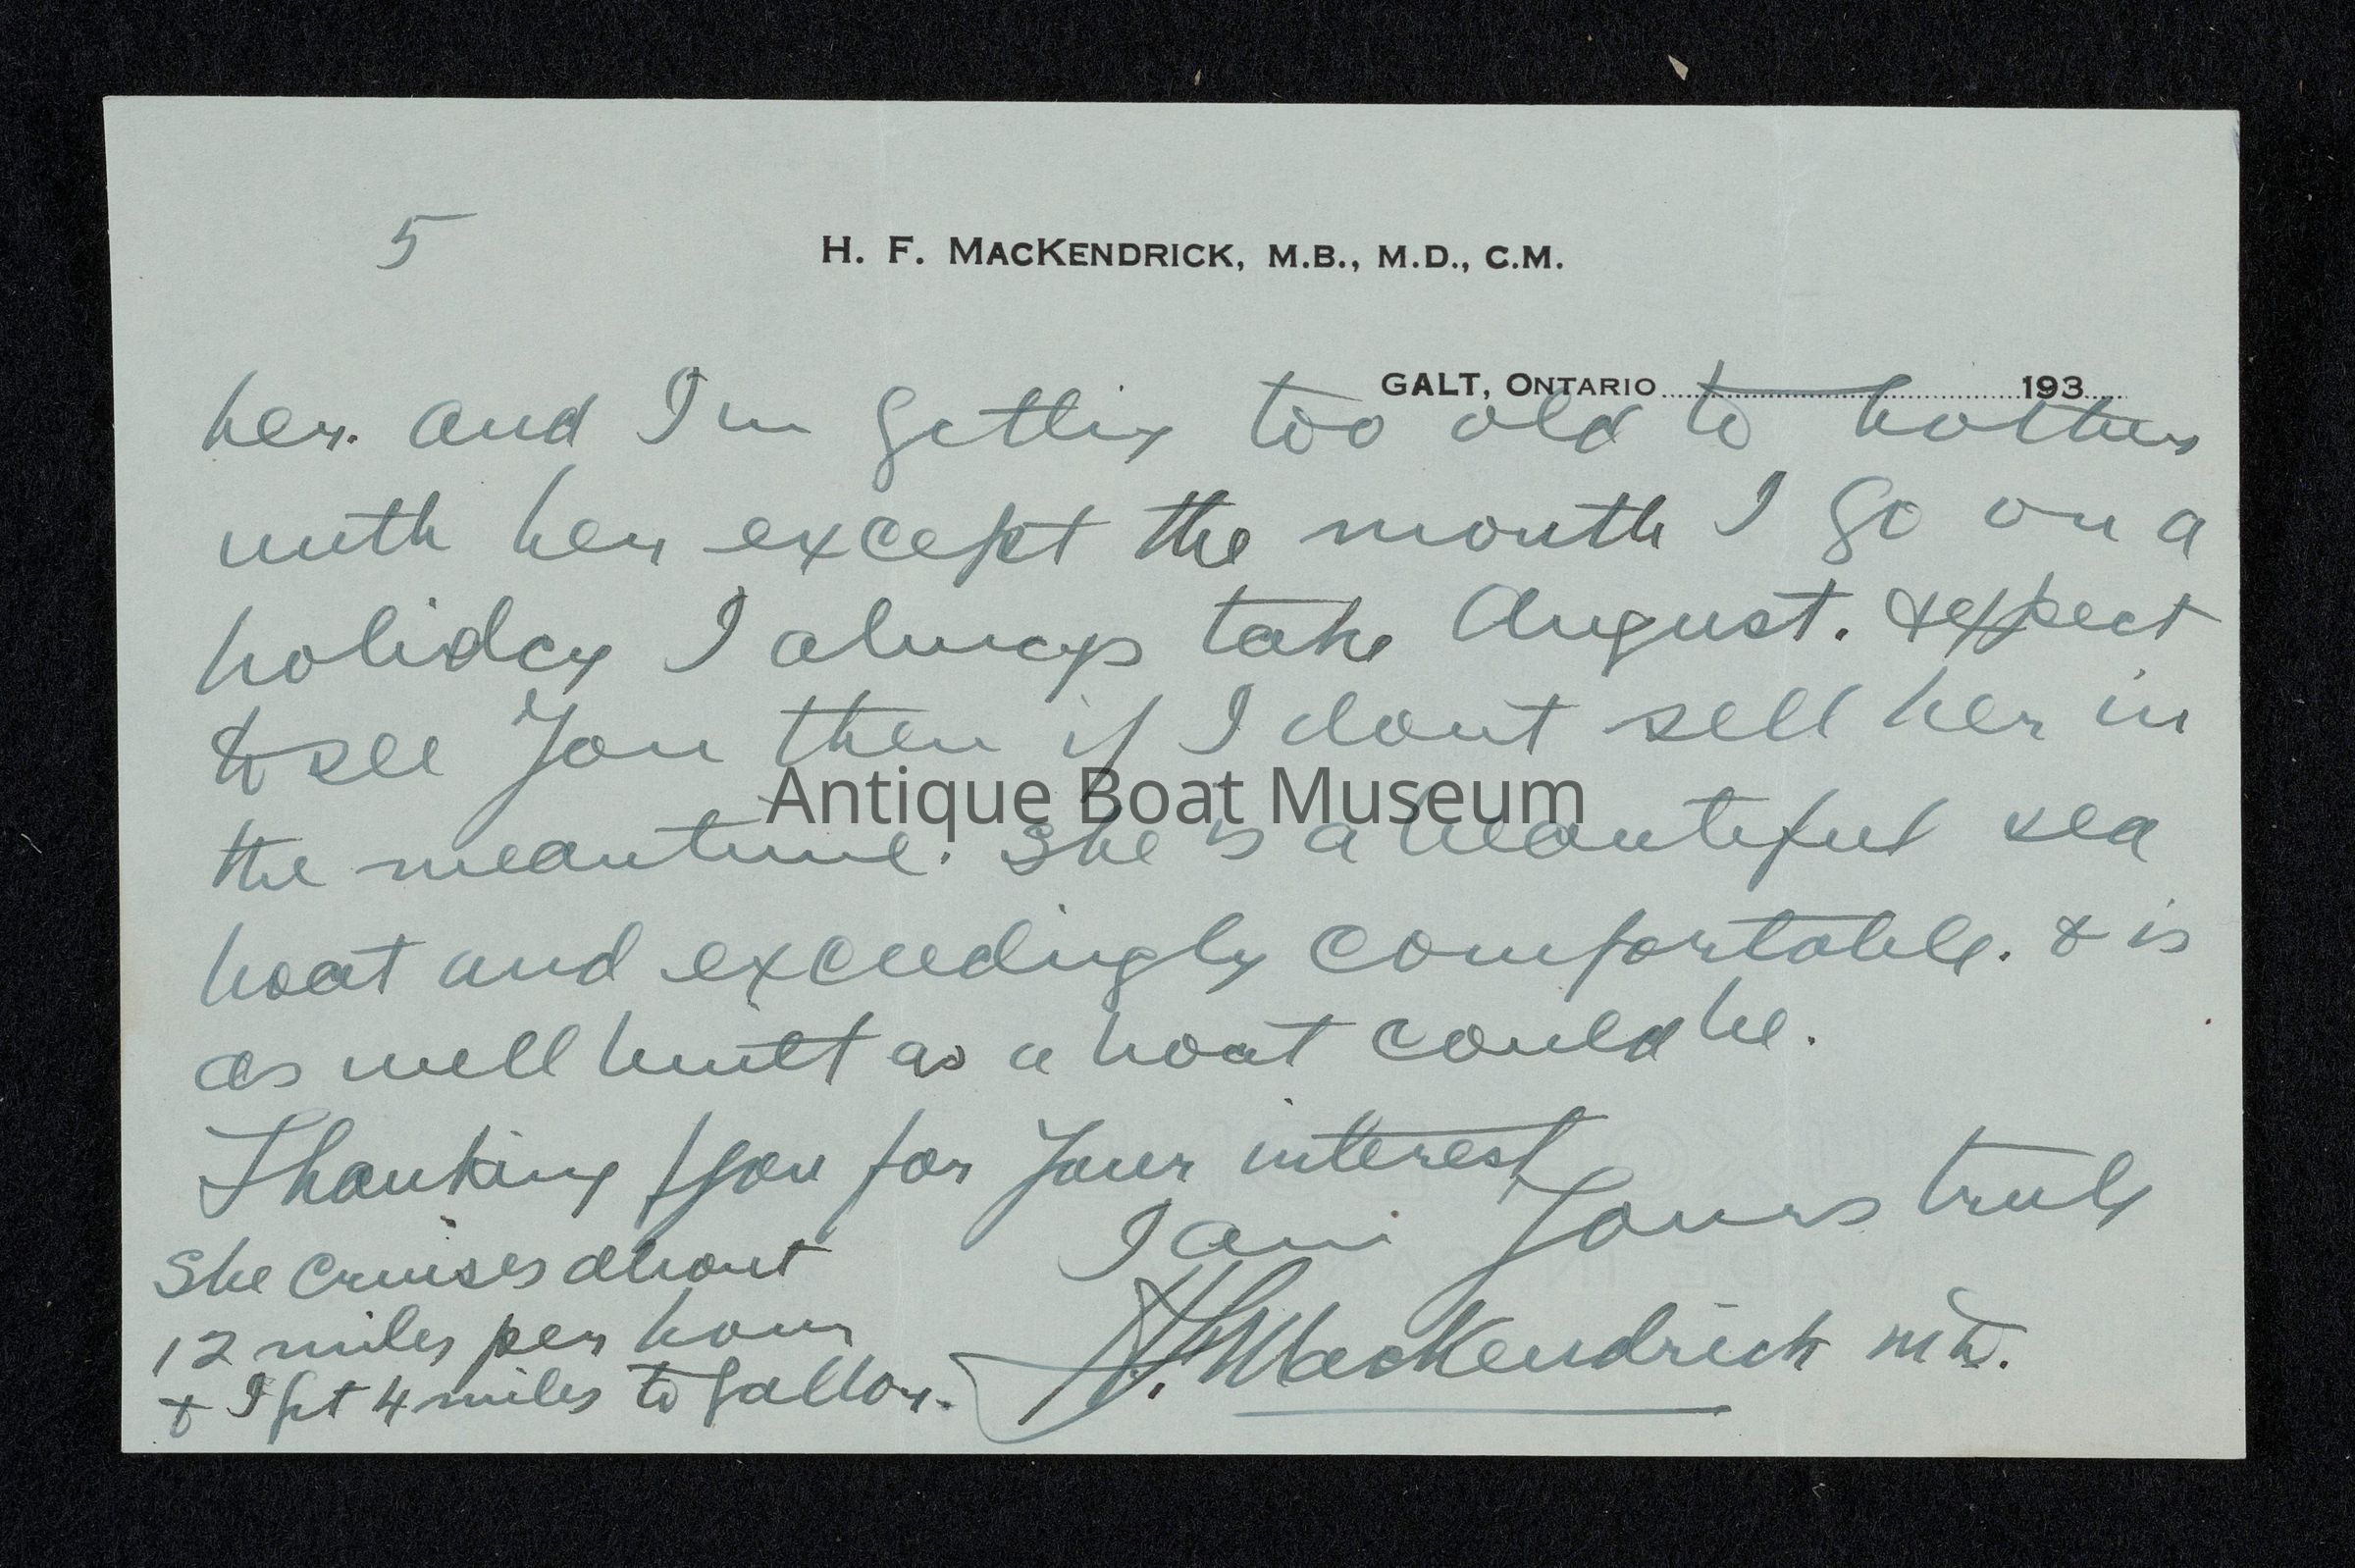 5
H. F. MACKENDRICK, M.B., M.D., C.M.
GALT, ONTARIO 193
her. and I'm getting too old to bother
with her except the month I go on a
holiday I always take August. & expect
to see you then if I dont sell her in
the meantime. She is a beautiful sea
boat and exceedingly comfortable. & is
as well built as a boat could be.
Thanking you for your interest
I am Yours truly
H. F. MacKendrick M.D.
She cruises about
12 miles per hour
& I get 4 miles to gallon.
Antique Boat Museum